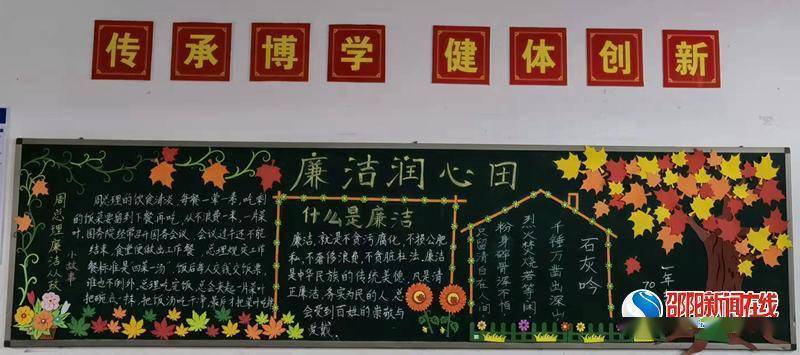 传承博学 健体创新
廉洁润心田
周总理廉洁从政
小故事
周总理的饮食清淡,每餐一荤一素,吃剩
的饭菜要留到下餐再吃,从不浪费一米,一菜
叶。国务院经常召开国务会议,会议过午还不能
结束,食堂便做出工作餐,总理规定工作
餐标准是四菜一汤,饭后每人交钱交饭票,
谁也不例外。总理吃完饭,总会夹起一片菜叶
把碗底一抹,把饭汤吃干净,最后才把菜叶吃掉
什么是廉洁
廉洁,就是不贪污腐化,不损公肥
私,不奢侈浪费,不贪赃枉法,廉洁
是中华民族的传统美德。凡是清
正廉洁、务实为民的人,总
会受到百姓的崇敬与
爱戴。
石灰吟
千锤万凿出深山
烈火焚烧若等闲
粉身碎骨浑不怕
只留清白在人间
一年
70
邵阳新闻在线